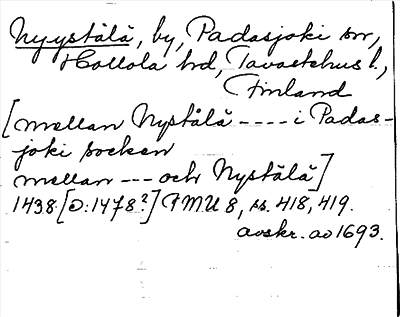 Nyystälä, by, Padasjoki sn,
Hollola hd, Tavastehus l.,
Finland
[mellan Nystälä ---- i Padas-
joki socken
mellan --- och Nystälä]
1438 [D: 1478?] FMU 8, ss. 418, 419.
avskr. av 1693.